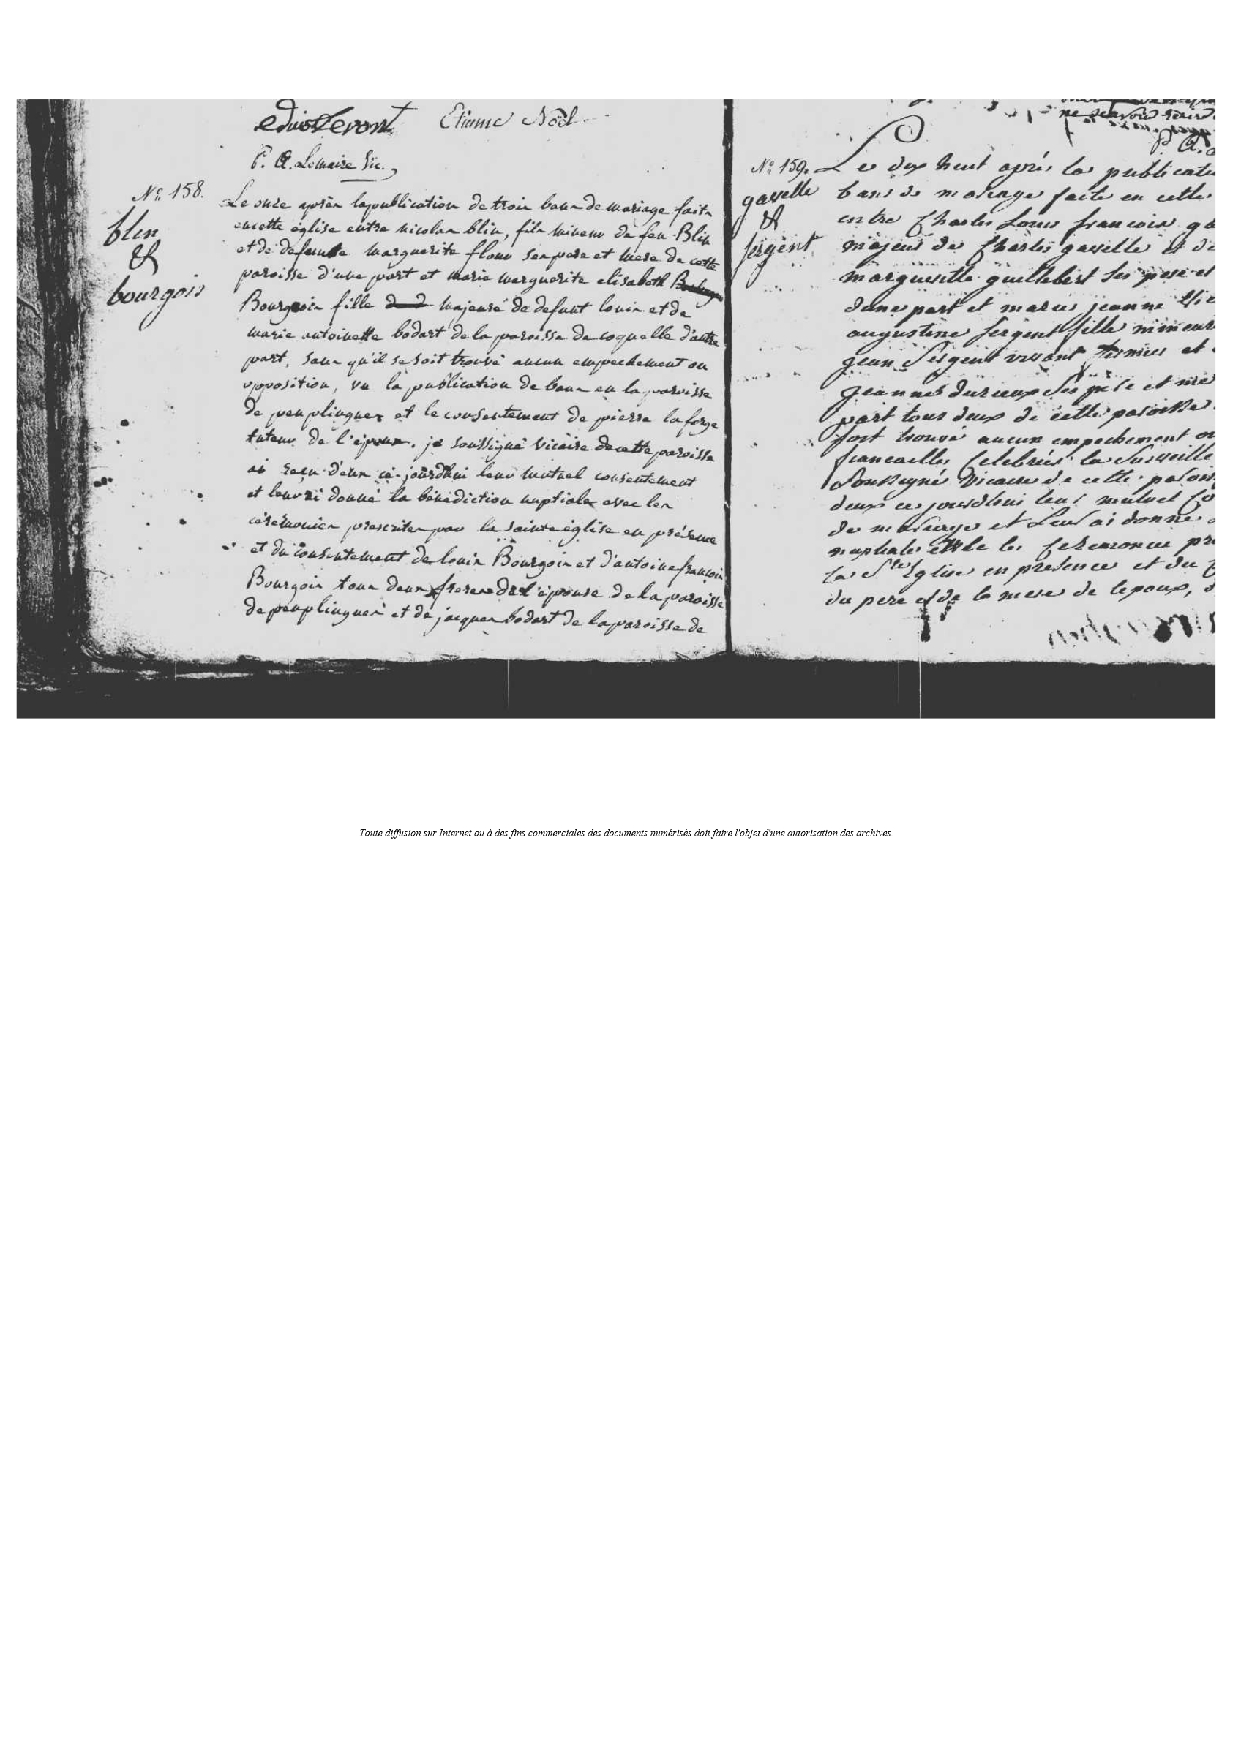 Etienne Noël
P. A. Lemaire Vic.
Nº 158.
blin
&
bourgois
Le onze après la publication de trois bans de mariage faite
en cette église entre nicolas blin, fils mineur de feu Blin
et de defunte marguerite flour ses pere et mere de cette
paroisse d'une part et marie marguerite elisabeth
Bourgois fille majeure de defunt louis et de
marie antoinette bodart de la paroisse de coquelle d'autre
part, sans qu'il se soit trouvé aucun empechement ou
opposition, vu la publication de bans en la paroisse
de peuplingues et le consentement de pierre laforge
tuteur de l'epoux, je soussigné vicaire de cette paroisse
ai reçu d'eux ce-jourdhui leur mutuel consentement
et leur ai donné la bénediction nuptiale avec les
céremonies prescrites par la sainte église en présence
et du consentement de louis Bourgois et d'antoine françois
Bourgois tous deux freres de l'épouse de la paroisse
de peuplingues et de jacques bodart de la paroisse de
ne scavoir
P. A.
Nº 159.
gavelle
&
sergent
Le dix huit après la publicati
bans de mariage faite en cette
entre Charles Louis francois ga
majeur de Charles gavelle et de
margueritte guillebert ses pere et
dune part et marie jeanne
augustine sergent fille mineure
jean Sergent vivant et
jeanne durieux ses pere et mere
part tous deux de cette paroisse
soit trouvé aucun empechement ou
fiancailles Celebrées la surveille
Soussigné Vicaire de cette paroiss
deux ce jourdhui leur mutuel Co
de mariage et Leur ai donné
nuptiale les Ceremonies pr
la Ste Eglise en presence et du
du pere et de la mere de lepoux,
Toute diffusion sur Internet ou à des fins commerciales des documents numérisés doit faire l'objet d'une autorisation des archives